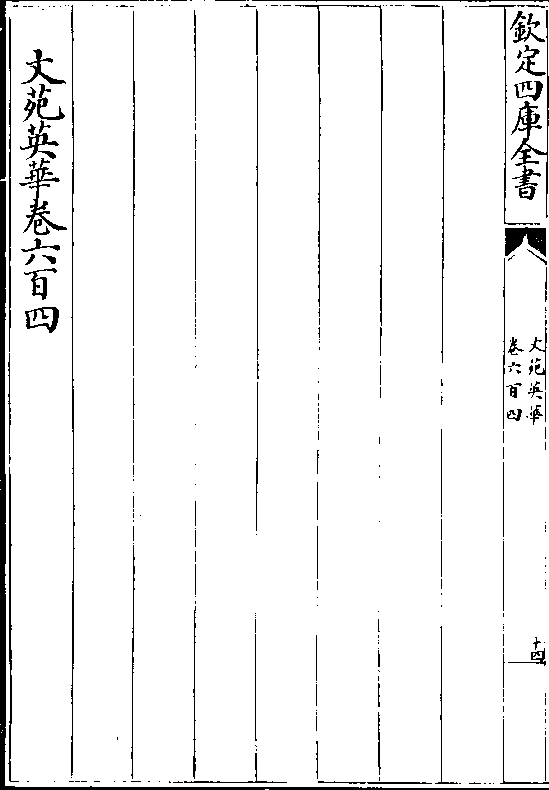 欽定四庫全書
文苑英華
卷六百四
十四
文苑英華卷六百四